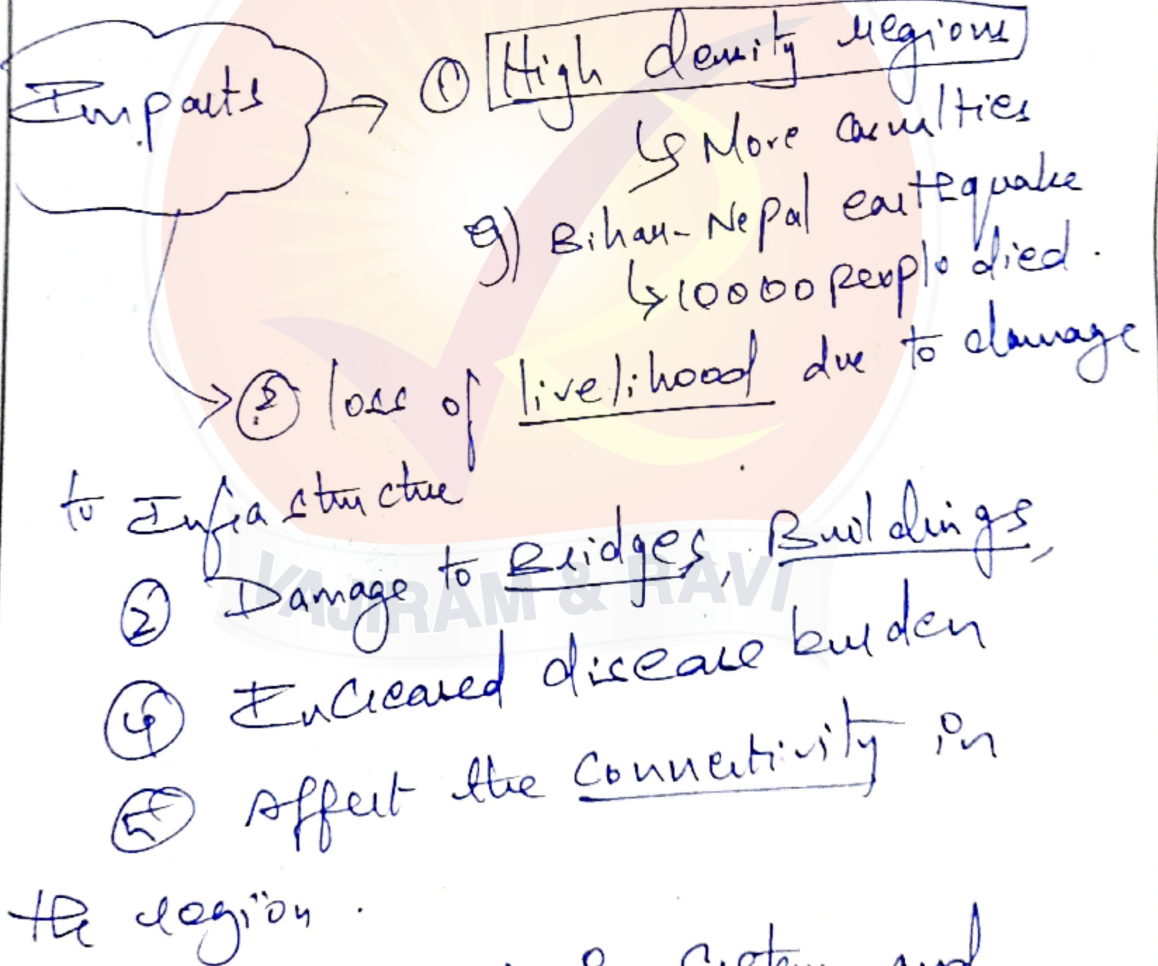 Impacts → ① High density regions
↳ More casulties
eg) Bihar-Nepal earthquake
↳ 10000 people died.
② loss of livelihood due to damage
to Infrastructre
VAJIRAM & RAVI
③ Damage to Bridges, Buildings,
④ Increased disease burden
⑤ Affect the connectivity in
the region.
System and